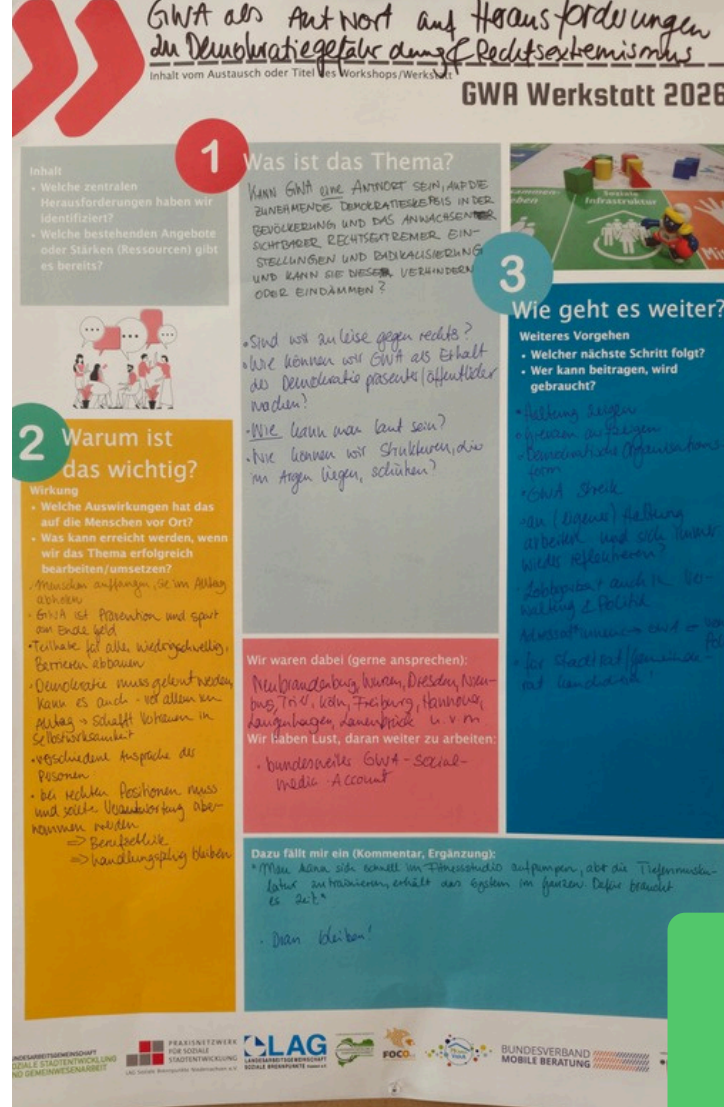 GWA als Antwort auf Herausforderungen
der Demokratiegefährdung & Rechtsextremismus
Inhalt vom Austausch oder Titel des Workshops/Werkstatt
GWA Werkstatt 2026
Inhalt
• Welche zentralen
Herausforderungen haben wir
identifiziert?
• Welche bestehenden Angebote
oder Stärken (Ressourcen) gibt
es bereits?
1
Was ist das Thema?
KANN GWA eine ANTWORT SEIN, AUF DIE
ZUNEHMENDE DEMOKRATIESKEPSIS IN DER
BEVÖLKERUNG UND DAS ANWACHSEN
SICHTBARER RECHTSEXTREMER EIN-
STELLUNGEN UND RADIKALISIERUNG
UND KANN SIE DIESE VERHINDERN
ODER EINDÄMMEN?
• Sind wir zu leise gegen rechts?
• Wie können wir GWA als Erhalt
der Demokratie präsenter/öffentlicher
machen?
• WIE kann man laut sein?
• Wie können wir Strukturen, die
im Argen liegen, schützen?
Soziale
Infrastruktur
2
Warum ist
das wichtig?
Wirkung
• Welche Auswirkungen hat das
auf die Menschen vor Ort?
• Was kann erreicht werden, wenn
wir das Thema erfolgreich
bearbeiten/umsetzen?
• Menschen auffangen, sie im Alltag
abholen
• GWA ist Prävention und spart
am Ende Geld
• Teilhabe für alle, niedrigschwellig,
Barrieren abbauen
• Demokratie muss gelernt werden,
kann es auch - vor allem im
Alltag → schafft Vertrauen in
Selbstwirksamkeit
• verschiedene Ansprüche der
Personen
• bei rechten Positionen muss
und sollte Verantwortung über-
nommen werden
⇒ Berufsethik
⇒ handlungsfähig bleiben
3
Wie geht es weiter?
Weiteres Vorgehen
• Welcher nächste Schritt folgt?
• Wer kann beitragen, wird
gebraucht?
• Haltung zeigen
• Grenzen aufzeigen
• Demokratische Organisations-
form
• GWA Streik
• an (eigener) Haltung
arbeiten und sich immer
wieder reflektieren?
• Lobbyarbeit auch in Ver-
waltung & Politik
GWA
• für Stadtrat/Gemeinde-
rat kandidieren!
Wir waren dabei (gerne ansprechen):
Neubrandenburg, Wurzen, Dresden, Nien-
burg, Trier, Köln, Freiburg, Hannover,
Langenhagen, u.v.m.
Wir haben Lust, daran weiter zu arbeiten:
• bundesweiter GWA-Social-
media-Account
Dazu fällt mir ein (Kommentar, Ergänzung):
"Man kann sich schnell im Fitnessstudio aufpumpen, aber die Tiefenmusku-
latur zu trainieren, erhält das System im ganzen. Dafür braucht
es Zeit"
• Dran bleiben!
SOZIALE STADTENTWICKLUNG
UND GEMEINWESENARBEIT
PRAXISNETZWERK
FÜR SOZIALE
STADTENTWICKLUNG
LAG Soziale Brennpunkte Niedersachsen e.V.
LAG
LANDESARBEITSGEMEINSCHAFT
SOZIALE BRENNPUNKTE
FOCO
BUNDESVERBAND
MOBILE BERATUNG